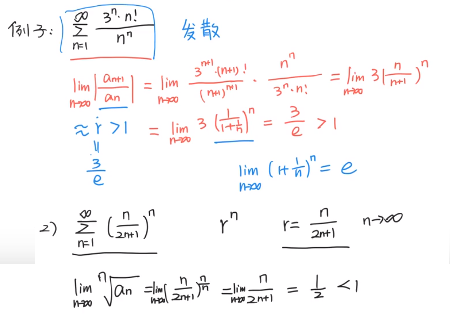 例子: ∑_{n=1}^{∞} 3^n·n! / n^n 发散
lim_{n→∞} |a_{n+1}/a_n| = lim_{n→∞} 3^{n+1}·(n+1)! / (n+1)^{n+1} · n^n / 3^n·n! = lim_{n→∞} 3(n/n+1)^n
≈ r > 1 = lim_{n→∞} 3(1/1+1/n)^n = 3/e > 1
॥
3/e lim_{n→∞} (1+1/n)^n = e
2) ∑_{n=1}^{∞} (n/2n+1)^n r^n r = n/2n+1 n→∞
lim_{n→∞} ^n√a_n = lim_{n→∞} (n/2n+1)^{n/n} = lim_{n→∞} n/2n+1 = 1/2 < 1